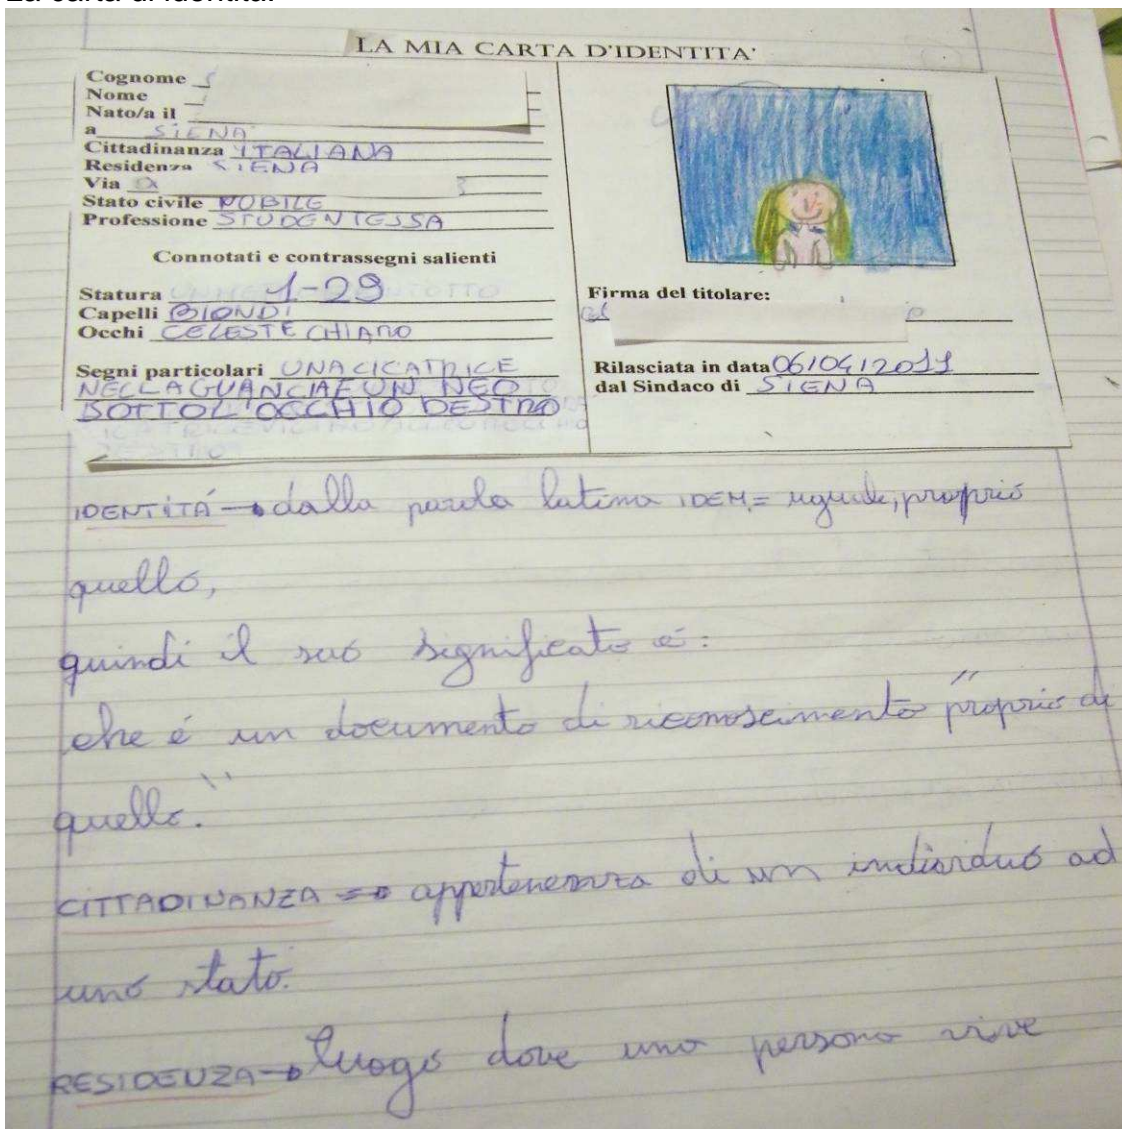 La carta di identità.
LA MIA CARTA D'IDENTITA'
Cognome
Nome
Nato/a il
a SIENA
Cittadinanza ITALIANA
Residenza SIENA
Via
Stato civile NOBILE
Professione STUDENTESSA
Connotati e contrassegni salienti
Statura 1-29
Capelli BIONDI
Occhi CELESTE CHIARO
Segni particolari UNA CICATRICE
NELLA GUANCIA E UN NEO
SOTTO L'OCCHIO DESTRO
Firma del titolare:
Rilasciata in data 06/04/2011
dal Sindaco di SIENA
IDENTITÁ → dalla parola latina IDEM = uguale, proprio
quello,
quindi il suo significato é:
che é un documento di riconoscimento "proprio di
quello."
CITTADINANZA → appartenenza di un individuo ad
uno stato.
RESIDENZA → luogo dove una persona vive